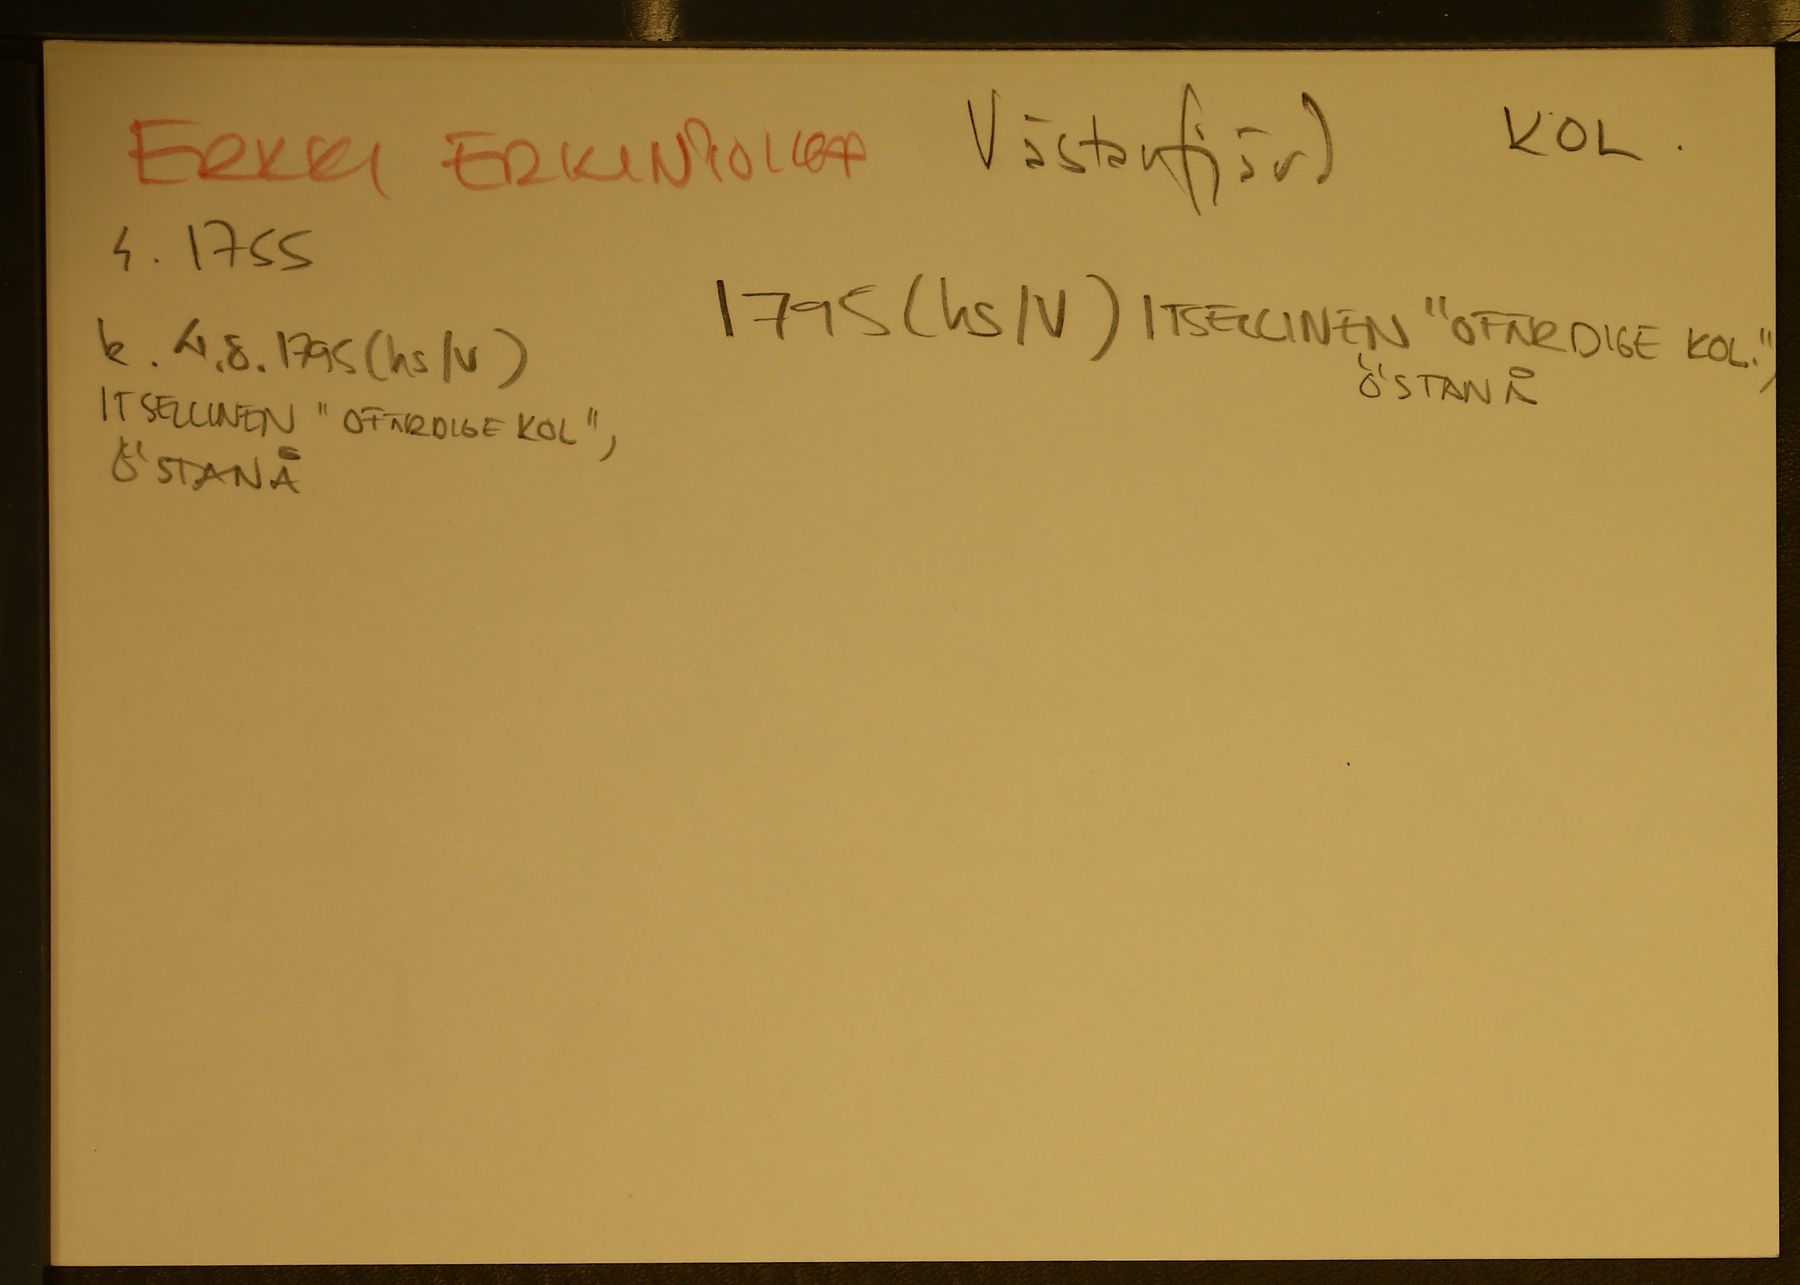 ERKKI ERKINPOIKA Västanfjärd KOL.
s. 1755
1795 (hs/V) ITSELLINEN "OFÄRDIGE KOL.",
ÖSTANÅ
k. 4.8.1795 (hs/V)
ITSELLINEN "OFÄRDIGE KOL",
ÖSTANÅ